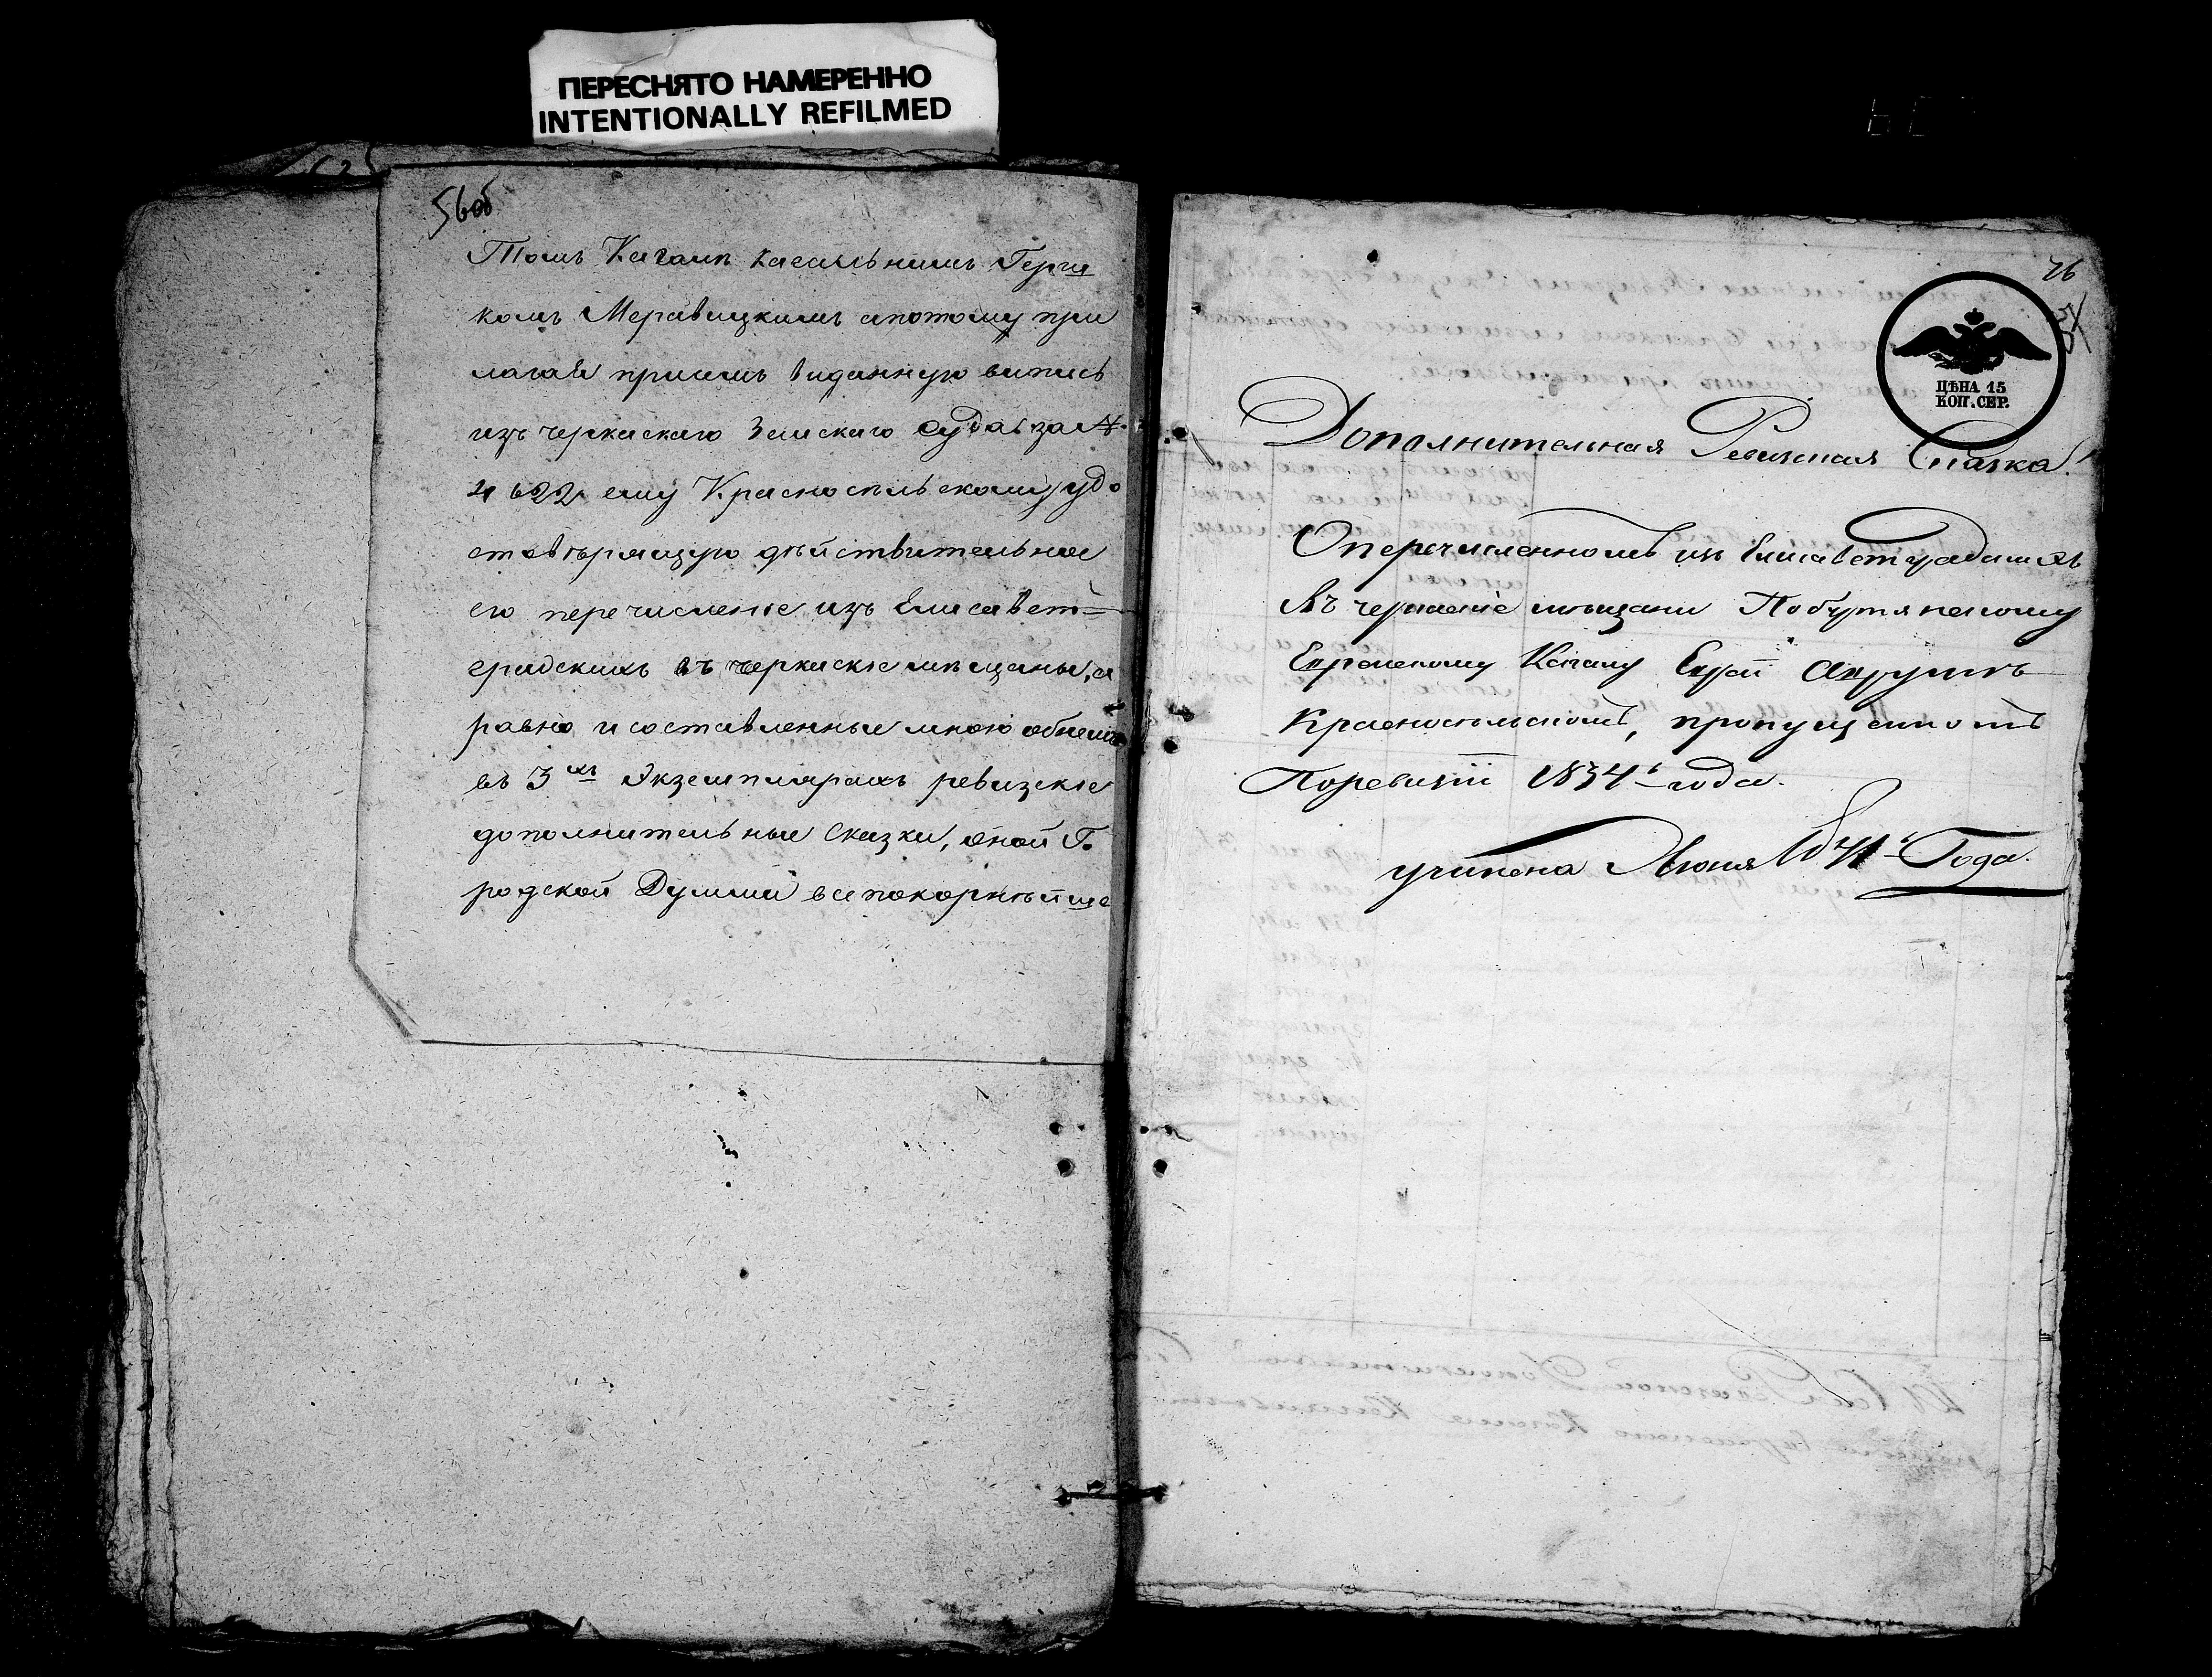 ПЕРЕСНЯТО НАМЕРЕННО
INTENTIONALLY REFILMED
56об
Томъ Кагалѣ Кагальнымъ Герш
комъ Меравицкимъ апотому при
лагая присемъ выданную выпись
изъ черкаскаго Земскаго суда за №
4622 ему Красносельскому удо
стовѣряющую дѣйствительное
его перечисленіе изъ Елисавет=
градскихъ въ черкаскіе мѣщаны, а
равно и составленные мною обнемъ
въ 3хъ Экземплярахъ ревизскіе
дополнительные Сказки, оной Го
родской Думѣ всепокорнѣйше
76
57
ЦѢНА 15
КОП. СЕР.
Дополнительная Ревизская Сказка.
Оперечисленномъ изъ Елисаветградскихъ
Въ черкаскіе мѣщани Побутянскому
Еврейскому Кагалу Еврей
Красносельскомъ, пропущенномъ
Поревизіи 1834 года.
учинена Июня 1841 Года.